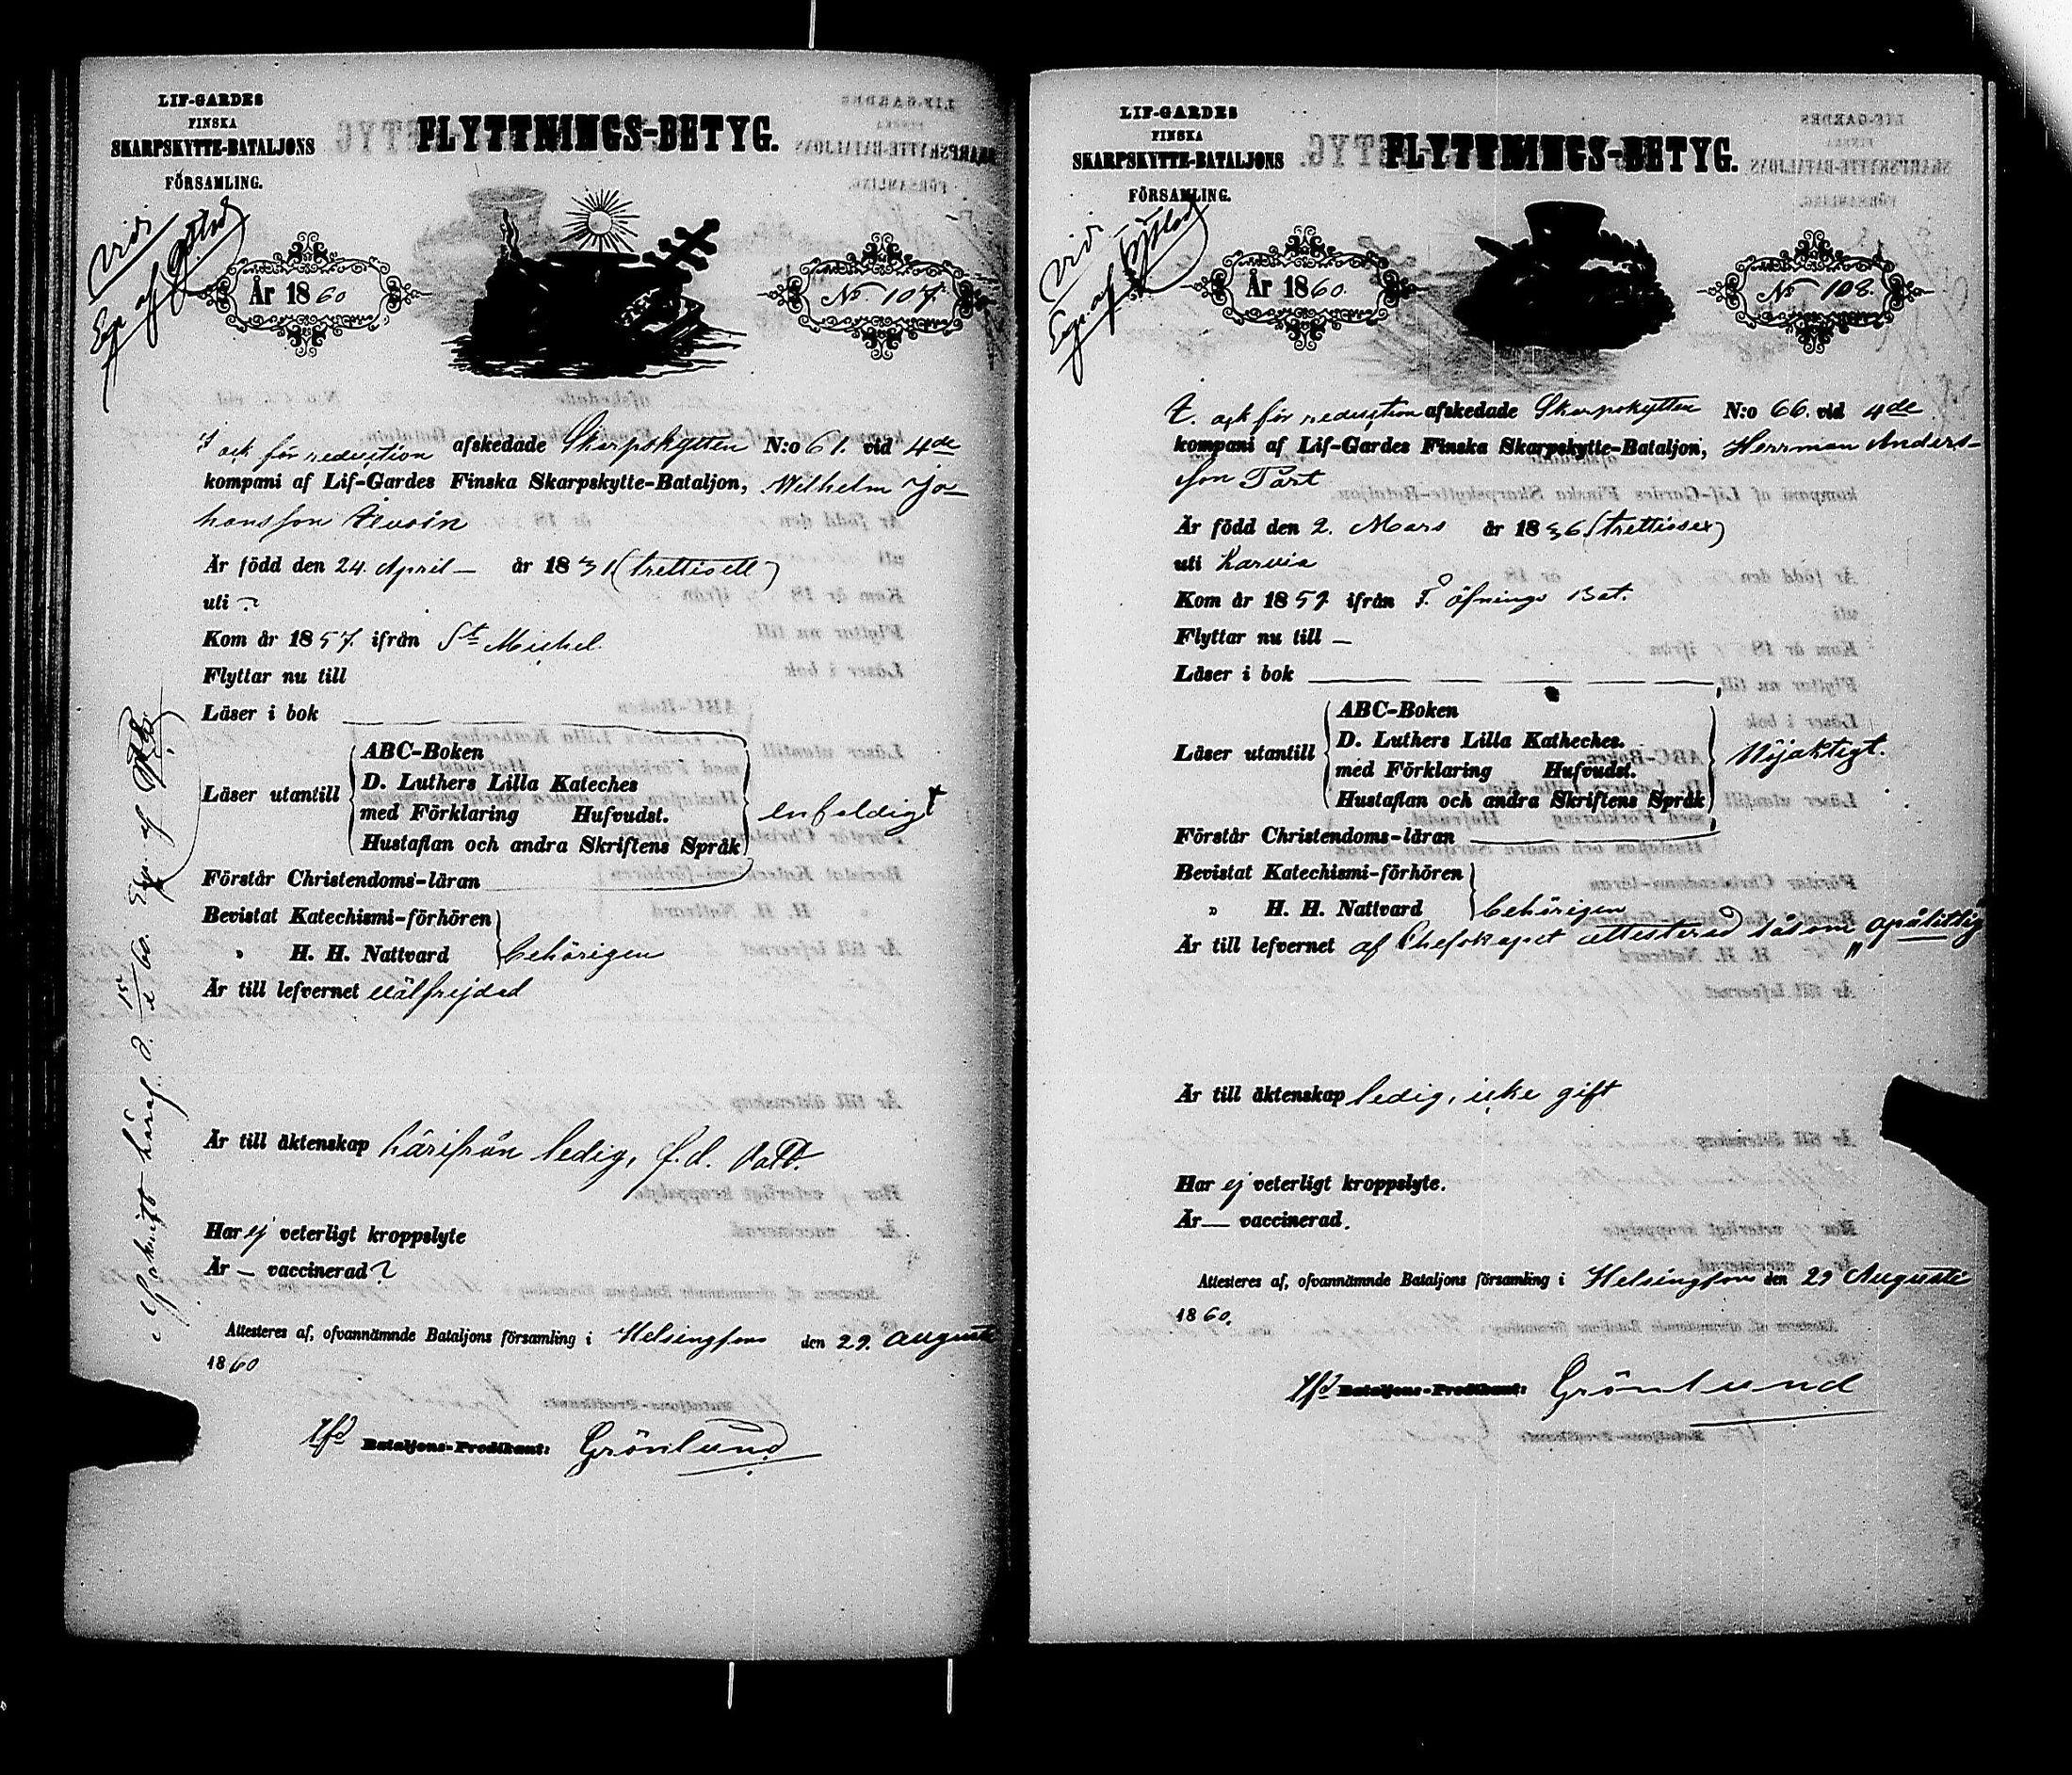 LIF-GARDES
FINSKA
SKARPSKYTTE-BATALJONS
FÖRSAMLING.
FLYTTNINGS-BETYG.
vidi
År 1860
No 107.
och för reduction afskedade Skarpskytten N:o 61. vid 4de
kompani af Lif-Gardes Finska Skarpskytte-Bataljon, Wilhelm Jo-
hansson
Är född den 24. April — år 1831 (trettioett)
uti
Kom år 1857. ifrån St Michel.
Flyttar nu till
Läser i bok
Läser utantill
ABC-Boken
D. Luthers Lilla Kateches
med Förklaring Hufvudst.
Hustaflan och andra Skriftens Språk
enfaldigt
Förstår Christendoms-läran
Bevistat Katechismi-förhören
" H. H. Nattvard
behörigen
Är till lefvernet välfrejdad
Är till äktenskap härifrån ledig,
Har ej veterligt kroppslyte
Är — vaccinerad?
Attesteres af, ofvannämnde Bataljons församling i Helsingfors den 29. Augusti
1860
Bataljons-Predikant: Grönlund
LIF-GARDES
FINSKA
SKARPSKYTTE-BATALJONS
FÖRSAMLING.
FLYTTNINGS-BETYG.
vidi
År 1860.
No 108.
och för reduction afskedade Skarpskytten N:o 66. vid 4de
kompani af Lif-Gardes Finska Skarpskytte-Bataljon, Herrman Anders-
son Pärt
Är född den 2. Mars år 1836 (trettiosex)
uti Karvia
Kom år 1857 ifrån öfnings Bat.
Flyttar nu till —
Läser i bok
Läser utantill
ABC-Boken
D. Luthers Lilla Katheches.
med Förklaring Hufvudst.
Hustaflan och andra Skriftens Språk
Nöjaktigt.
Förstår Christendoms-läran
Bevistat Katechismi-förhören
" H. H. Nattvard
behörigen
Är till lefvernet af Chefskapet attesterad såsom "opålitlig
Är till äktenskap ledig, icke gift
Har ej veterligt kroppslyte.
Är — vaccinerad.
Attesteres af, ofvannämnde Bataljons församling i Helsingfors den 29 Augusti
1860.
Bataljons-Predikant: Grönlund